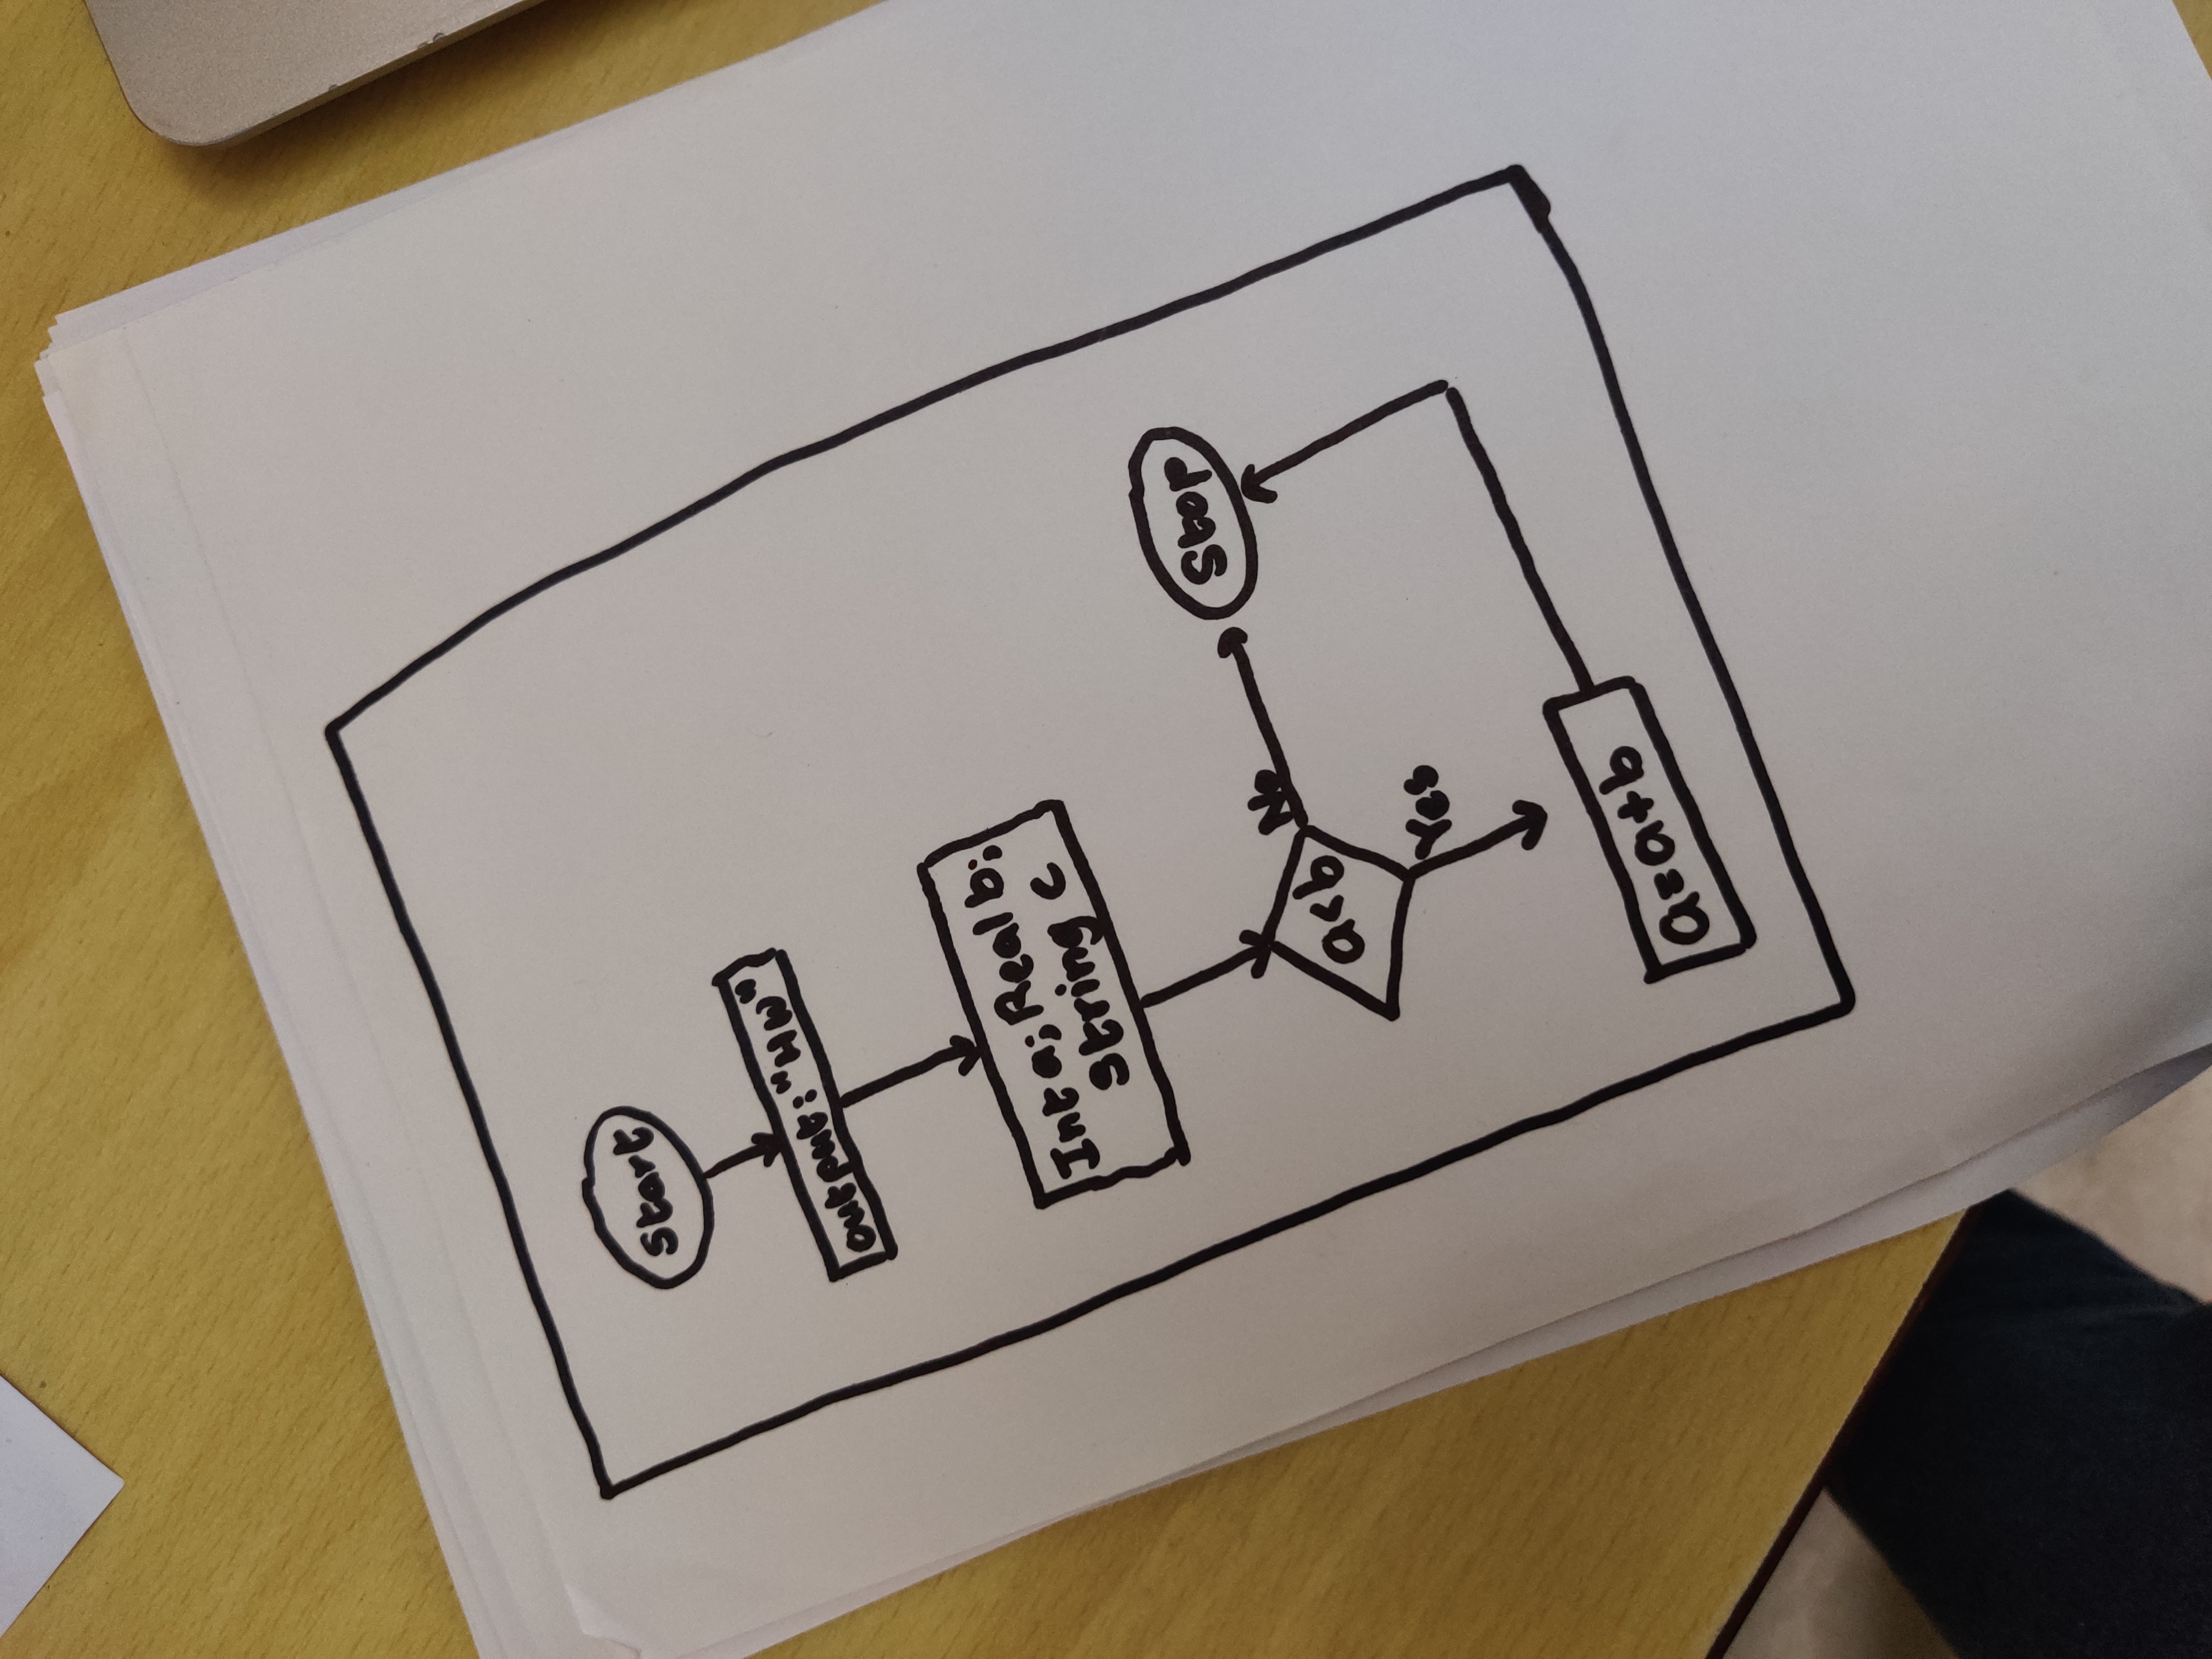 Start
output:"HW"
Int a; Real b;
String c
Stop
No
a<b
Yes
a=a+b